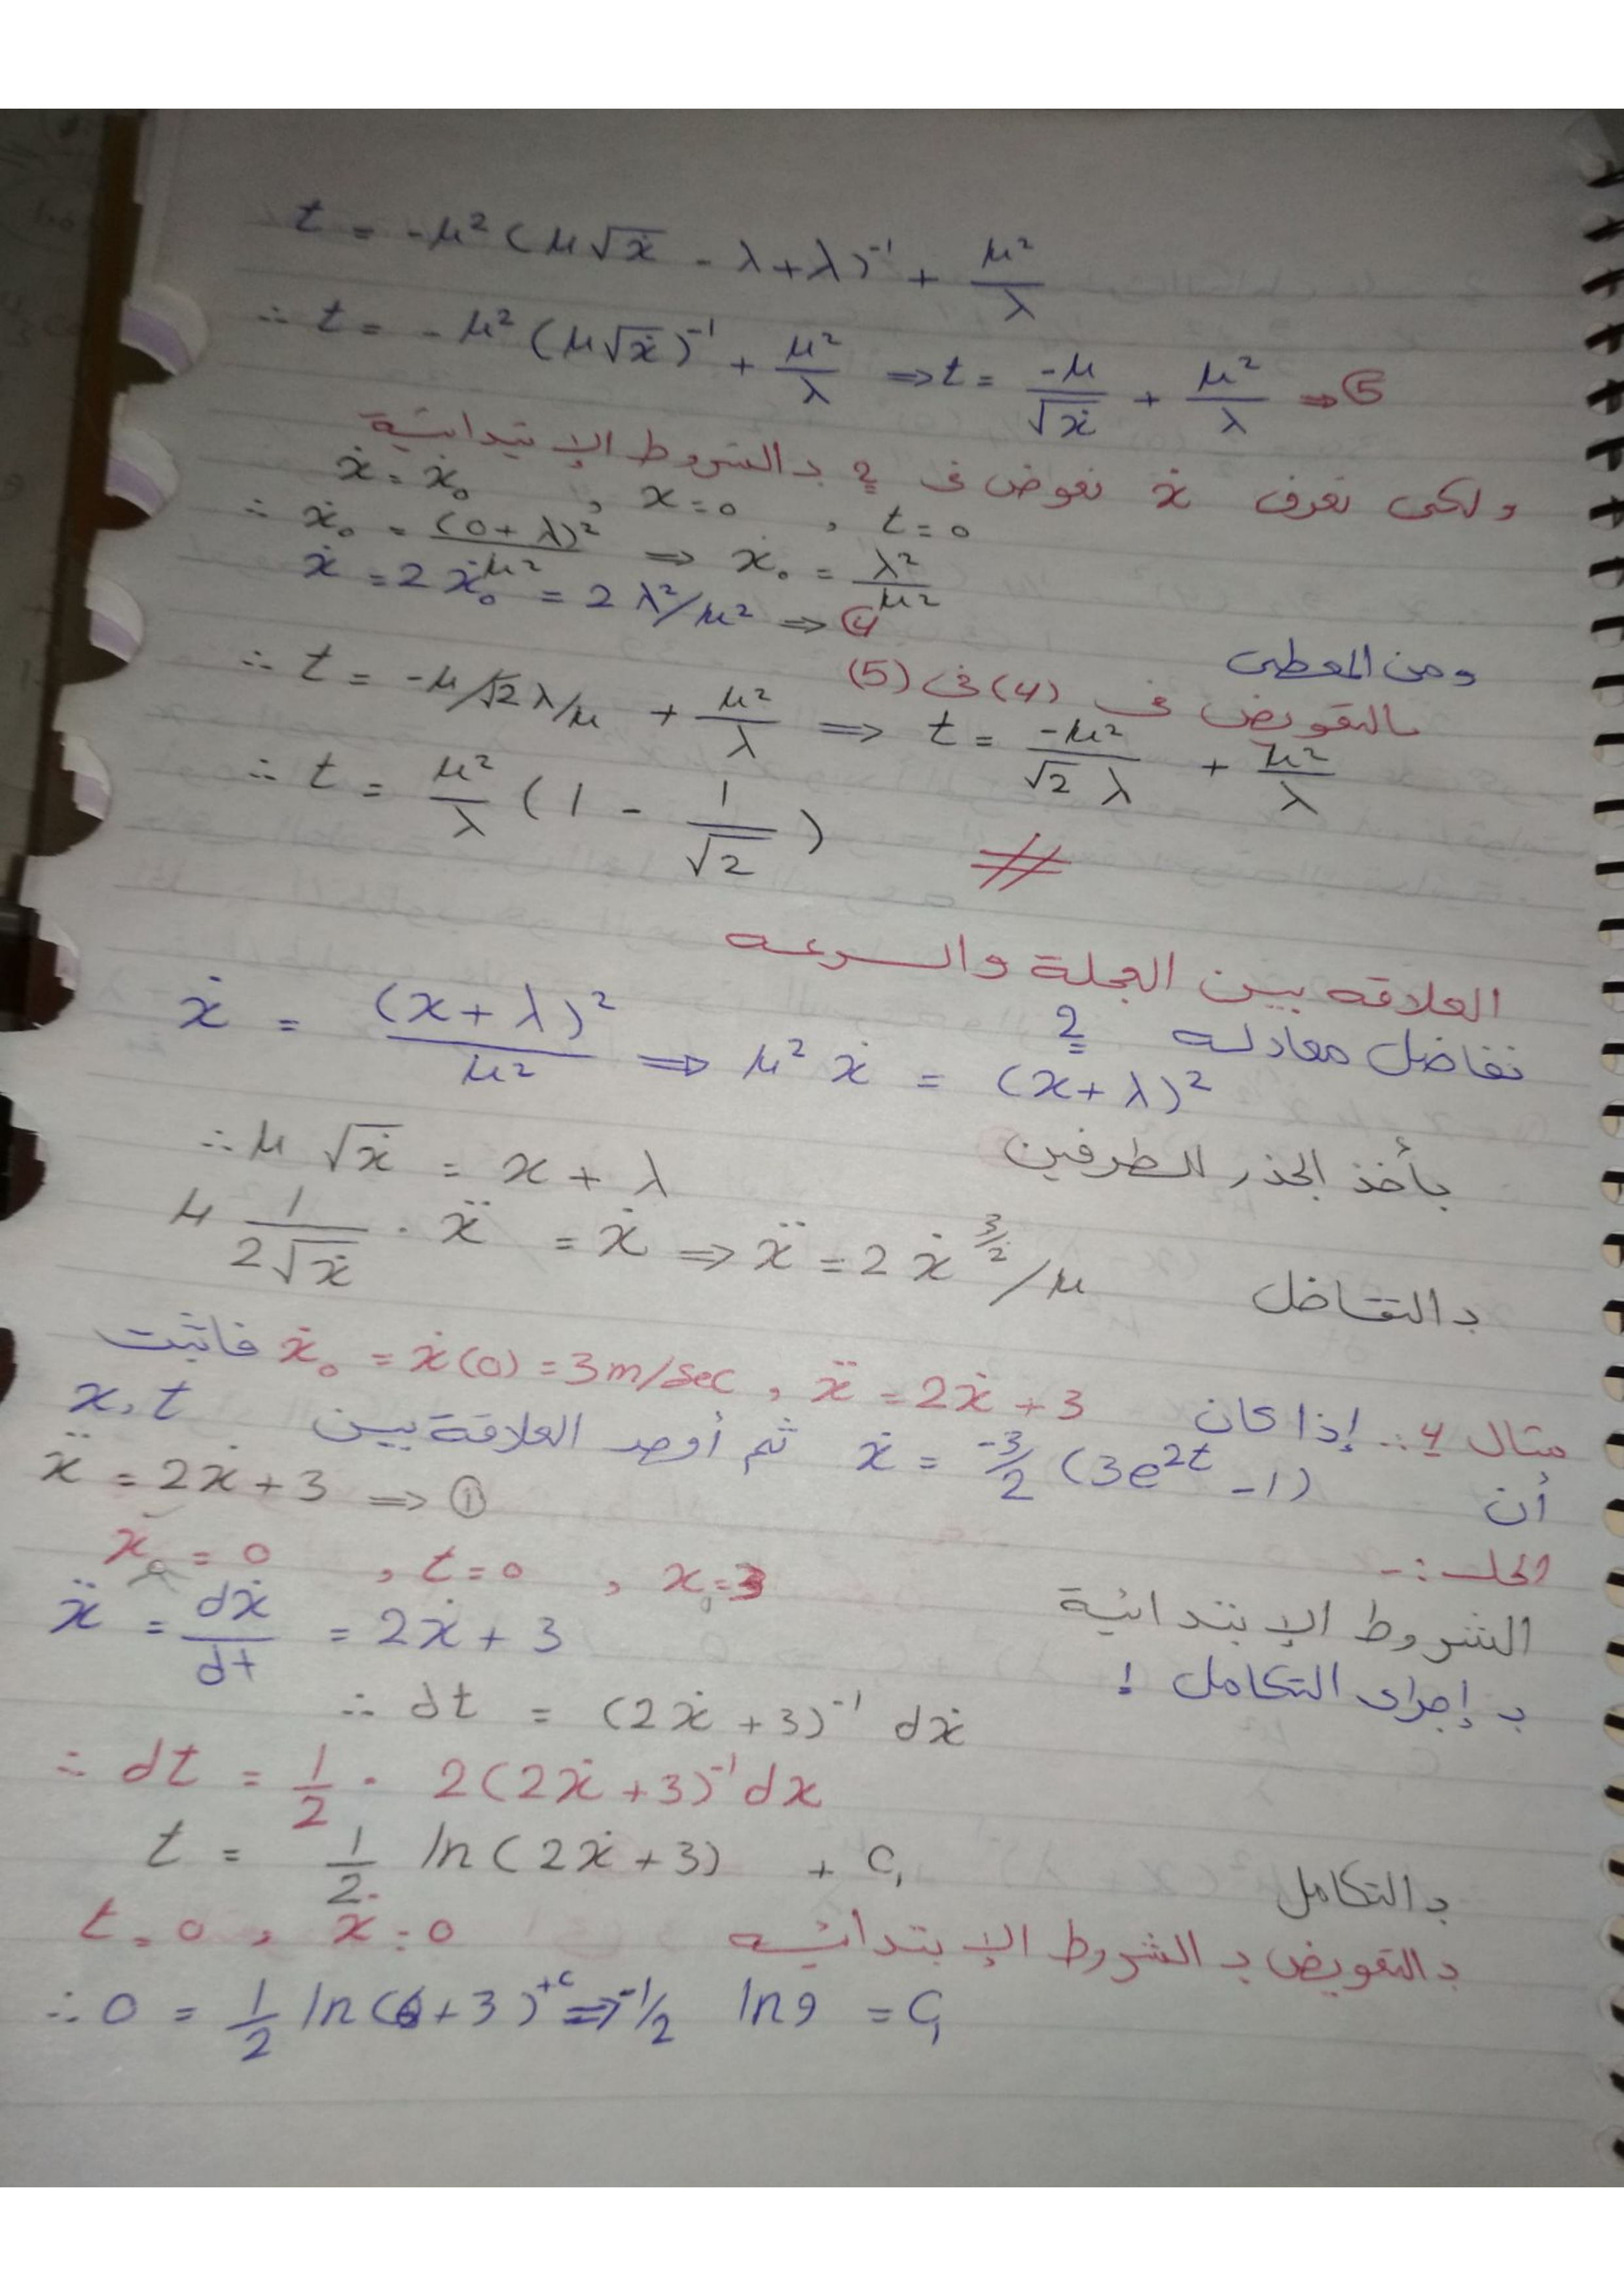 t = -μ² (μ√ẋ - λ + λ)⁻¹ + μ²/λ
∴ t = -μ² (μ√ẋ)⁻¹ + μ²/λ ⇒ t = -μ/√ẋ + μ²/λ ⇒ 5
ولكى نعرف ẋ نعوض فى 2 بالشروط الإبتدائية
ẋ = ẋ₀ , x = 0 , t = 0
∴ ẋ₀ = (0 + λ)²/μ² ⇒ ẋ₀ = λ²/μ²
ومن المعطى ẋ = 2ẋ₀ = 2λ²/μ² ⇒ 4
بالتعويض فى (4) فى (5)
∴ t = -μ/√2 λ/μ + μ²/λ ⇒ t = -μ²/√2 λ + μ²/λ
∴ t = μ²/λ (1 - 1/√2) #
العلاقه بين العجلة والسرعه
نفاضل معادله 2
ẋ = (x + λ)²/μ² ⇒ μ² ẋ = (x + λ)²
بأخذ الجذر للطرفين
∴ μ √ẋ = x + λ
بالتفاضل
μ 1/2√ẋ · ẍ = ẋ ⇒ ẍ = 2 ẋ^3/2 /μ
مثال 4 :. إذا كان ẍ = 2ẋ + 3 , ẋ₀ = ẋ(0) = 3m/sec فاثبت
أن ẋ = -3/2 (3e²ᵗ - 1) ثم أوجد العلاقة بين x, t
الحل :-
ẍ = 2ẋ + 3 ⇒ ①
الشروط الإبتدائية
x₀ = 0 , t = 0 , x₀ = 3
بإجراء التكامل !
ẍ = dẋ/dt = 2ẋ + 3
∴ dt = (2ẋ + 3)⁻¹ dẋ
∴ dt = 1/2 · 2(2ẋ + 3)⁻¹ dx
بالتكامل
t = 1/2 ln(2ẋ + 3) + C₁
بالتعويض بالشروط الإبتدائيه t = 0 , x = 0
∴ 0 = 1/2 ln(6 + 3) + c ⇒ -1/2 ln9 = C₁